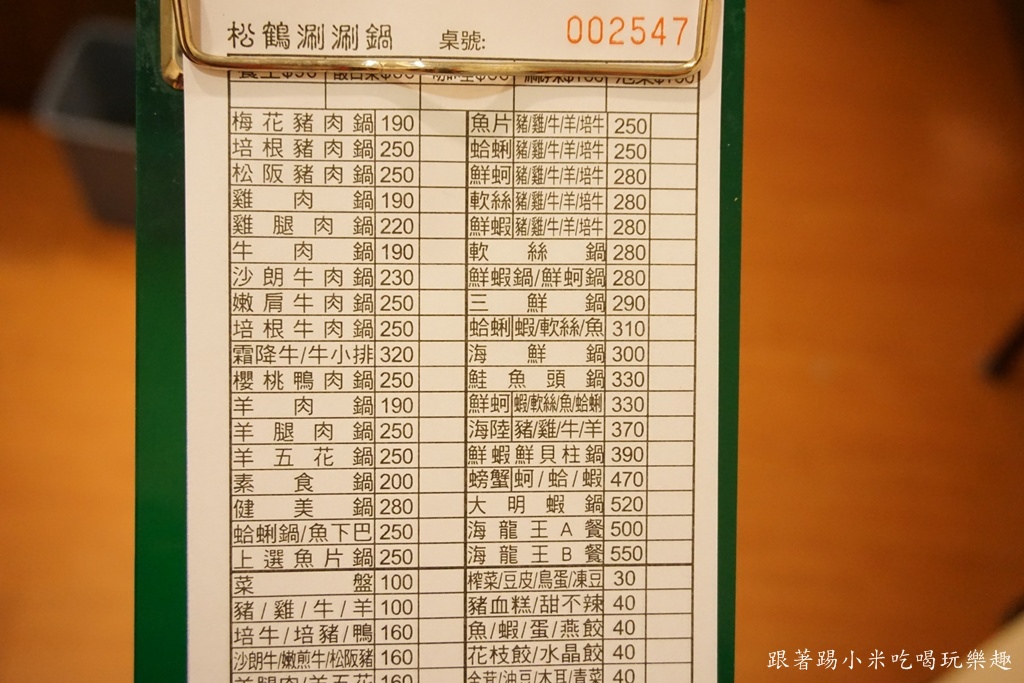 松鶴涮涮鍋 桌號: 002547
梅花豬肉鍋 190 魚片 豬/雞/牛/羊/培牛 250
培根豬肉鍋 250 蛤蜊 豬/雞/牛/羊/培牛 250
松阪豬肉鍋 250 鮮蚵 豬/雞/牛/羊/培牛 280
雞肉鍋 190 軟絲 豬/雞/牛/羊/培牛 280
雞腿肉鍋 220 鮮蝦 豬/雞/牛/羊/培牛 280
牛肉鍋 190 軟絲鍋 280
沙朗牛肉鍋 230 鮮蝦鍋/鮮蚵鍋 280
嫩肩牛肉鍋 250 三鮮鍋 290
培根牛肉鍋 250 蛤蜊 蝦/軟絲/魚 310
霜降牛/牛小排 320 海鮮鍋 300
櫻桃鴨肉鍋 250 鮭魚頭鍋 330
羊肉鍋 190 鮮蚵 蝦/軟絲/魚/蛤蜊 330
羊腿肉鍋 250 海陸 豬/雞/牛/羊 370
羊五花鍋 250 鮮蝦鮮貝柱鍋 390
素食鍋 200 螃蟹 蚵/蛤/蝦 470
健美鍋 280 大明蝦鍋 520
蛤蜊鍋/魚下巴 250 海龍王A餐 500
上選魚片鍋 250 海龍王B餐 550
菜盤 100 榨菜/豆皮/鳥蛋/凍豆 30
豬/雞/牛/羊 100 豬血糕/甜不辣 40
培牛/培豬/鴨 160 魚/蝦/蛋/燕餃 40
沙朗牛/嫩煎牛/松阪豬 160 花枝餃/水晶餃 40
羊腿肉/羊五花 160 金茸/油豆/木耳/青菜 40
跟著踢小米吃喝玩樂趣